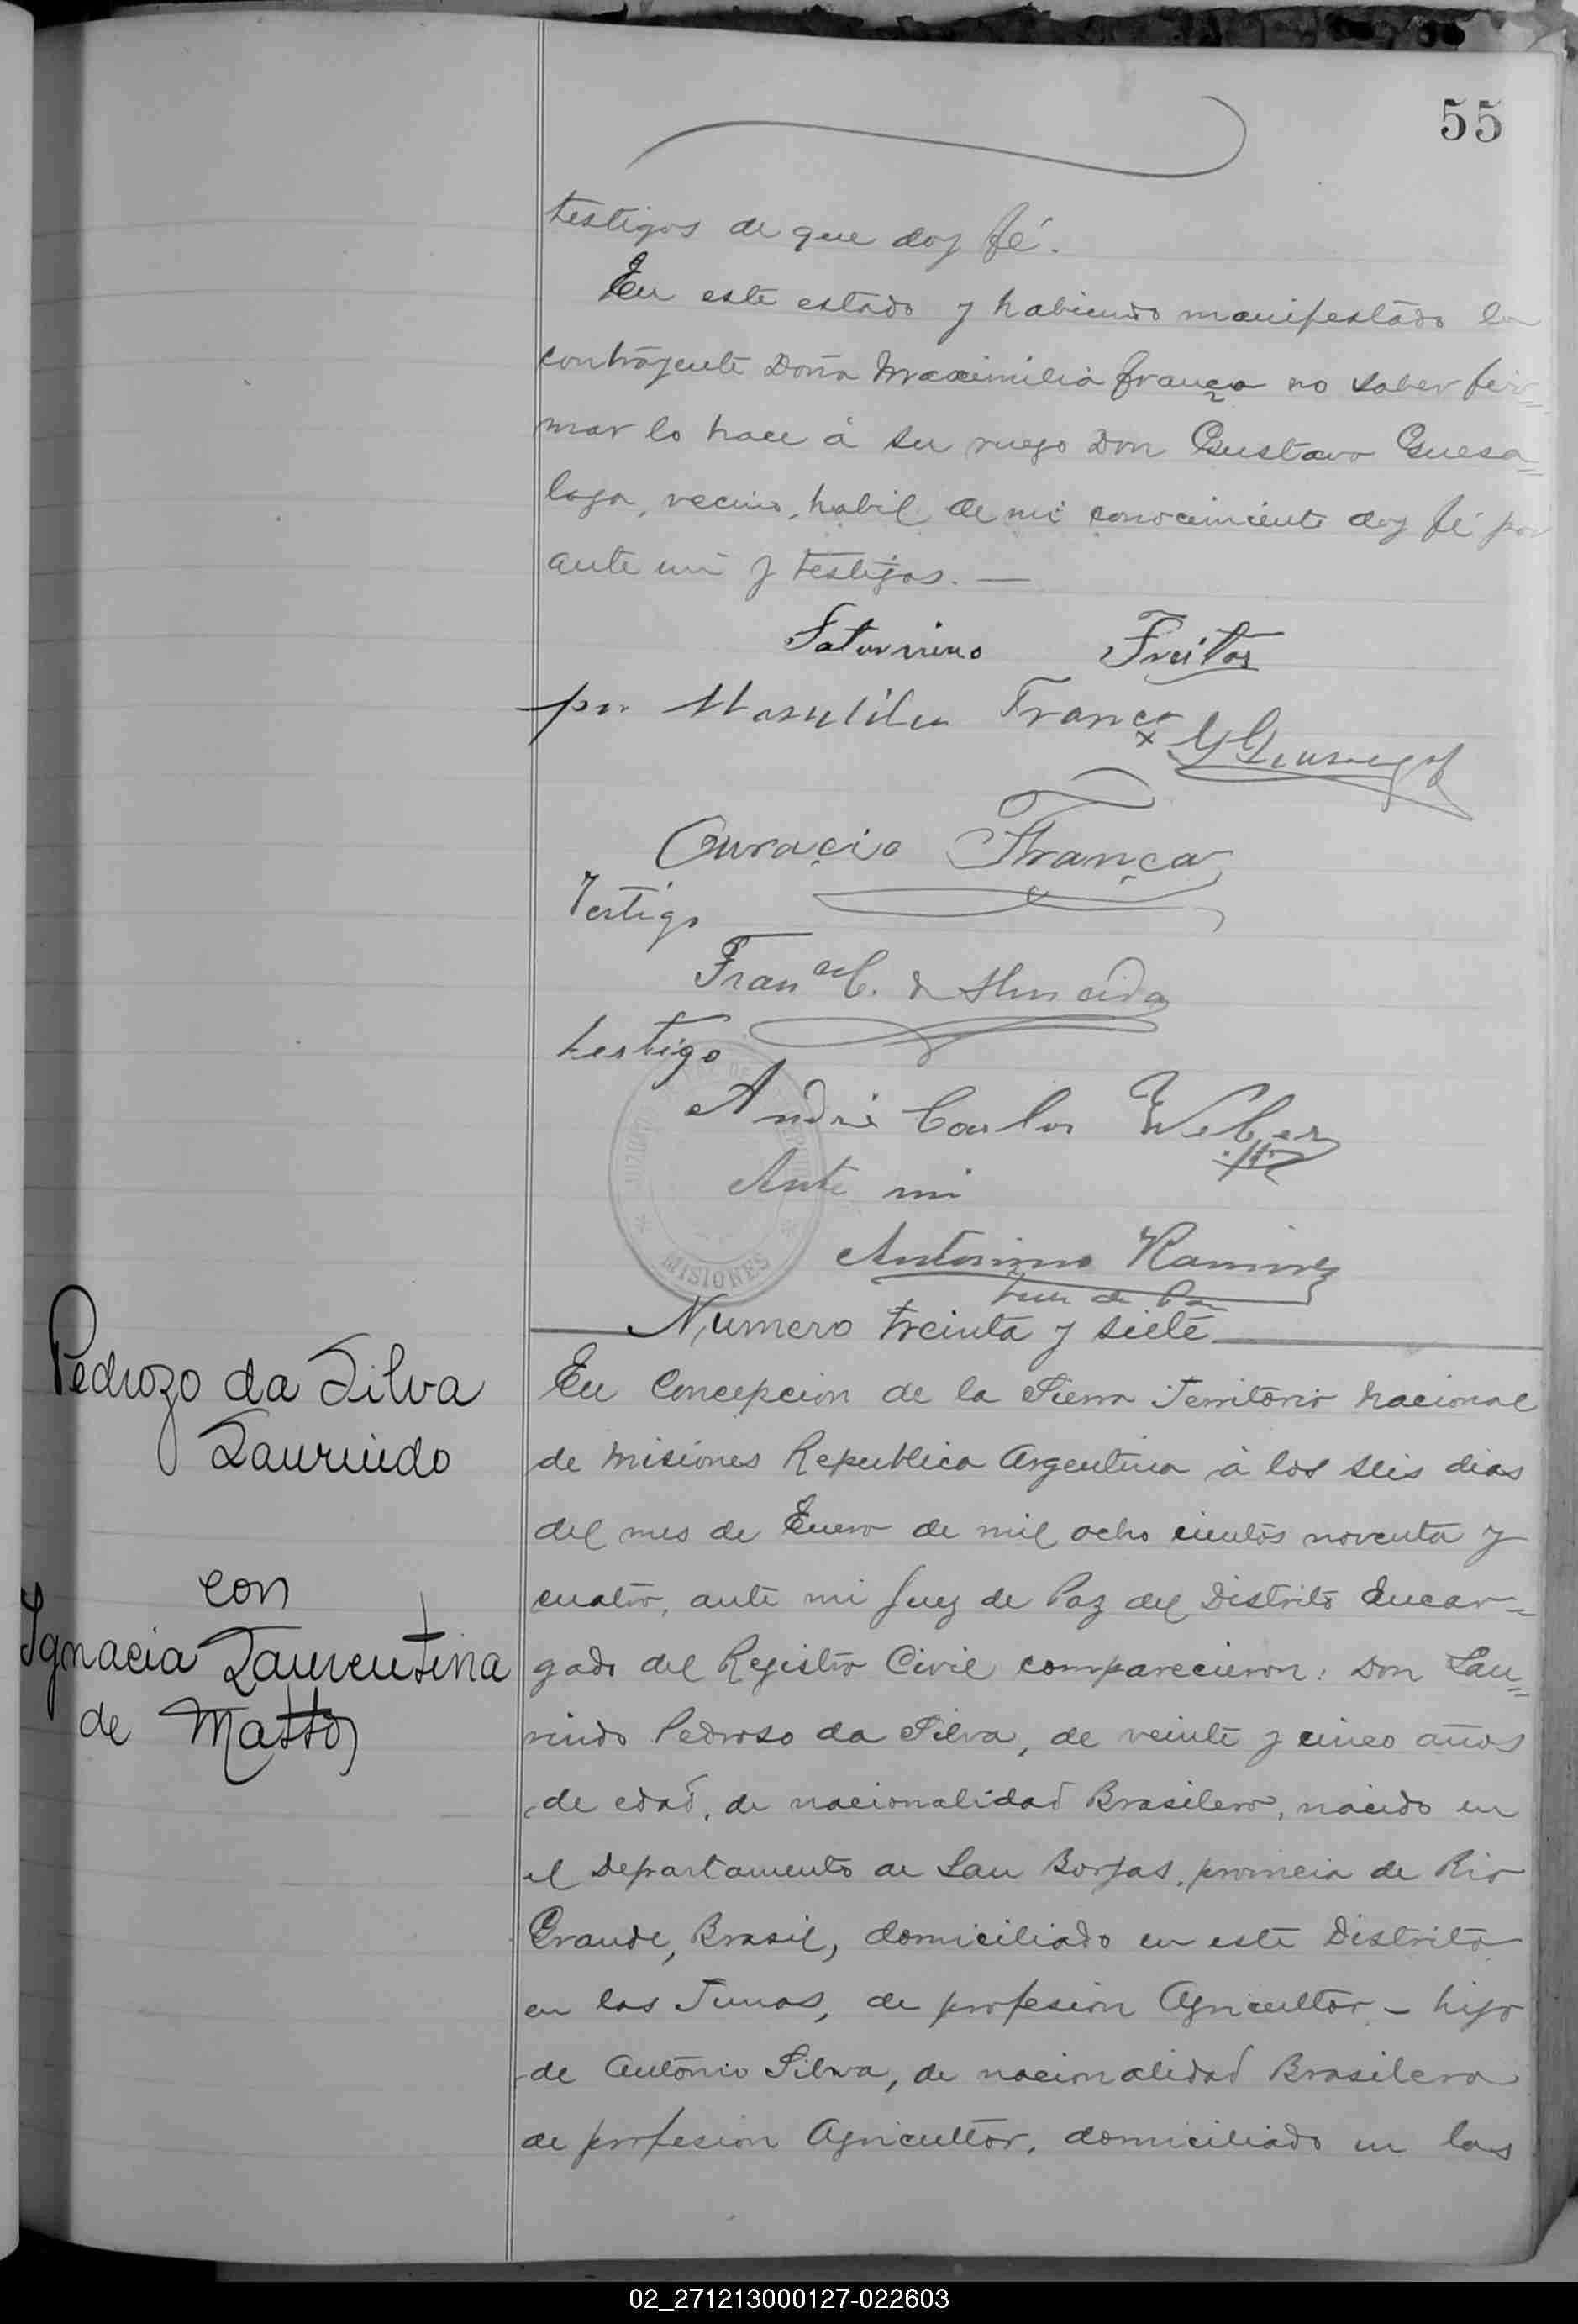 55
testigos de que doy fé.
En este estado y habiendo manifestado la
contrayente Doña Maximilia França no saber fir=
mar lo hace á su ruego Don Gustavo Guesa=
laga, vecino, habil de mi conocimiento doy fé por
ante mi y testigos. —
Saturnino Freitas
por França
Ouracio França
Testigo
Fran^co C. de Almeida
testigo
André Carlos Weber
Ante mi
Antonino Ramirez
Juez de Paz
MISIONES
Numero treinta y siete
Pedrozo da Silva
Laurindo
con
Ignacia Laurentina
de Mattos
En Concepcion de la Sierra Territorio Nacional
de Misiones Republica Argentina á los seis dias
del mes de Enero de mil ocho cientos noventa y
cuatro, ante mi Juez de Paz del Distrito Encar=
gado del Registro Civil comparecieron: Don Lau=
rindo Pedroso da Silva, de veinte y cinco años
de edad, de nacionalidad Brasilero, nacido en
el Departamento de San Borjas, provincia de Rio
Grande, Brasil, domiciliado en este Distrito
en las Tunas, de profesion Agricultor – hijo
de Antonio Silva, de nacionalidad Brasilera
de profesion Agricultor, domiciliado en las
02_271213000127-022603